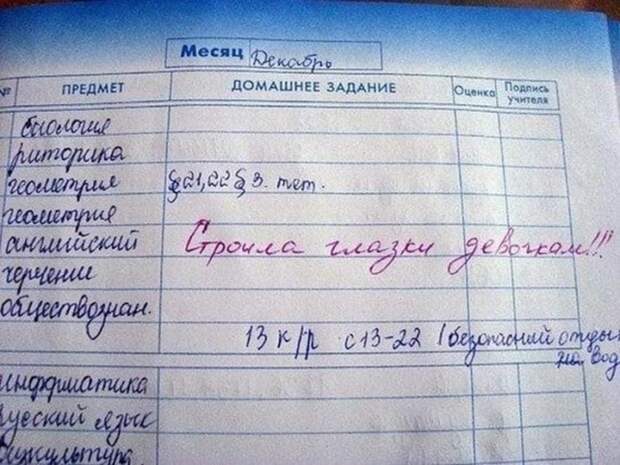 Месяц Декабрь
№ ПРЕДМЕТ ДОМАШНЕЕ ЗАДАНИЕ Оценка Подпись учителя
биология
риторика
геометрия §21,22 § 3. тет.
геометрия
английский Строила глазки девочкам!!!
черчение
обществознан.
13 к/р с13-22 (безопасный отдых
на вод
информатика
русский язык
физкультура